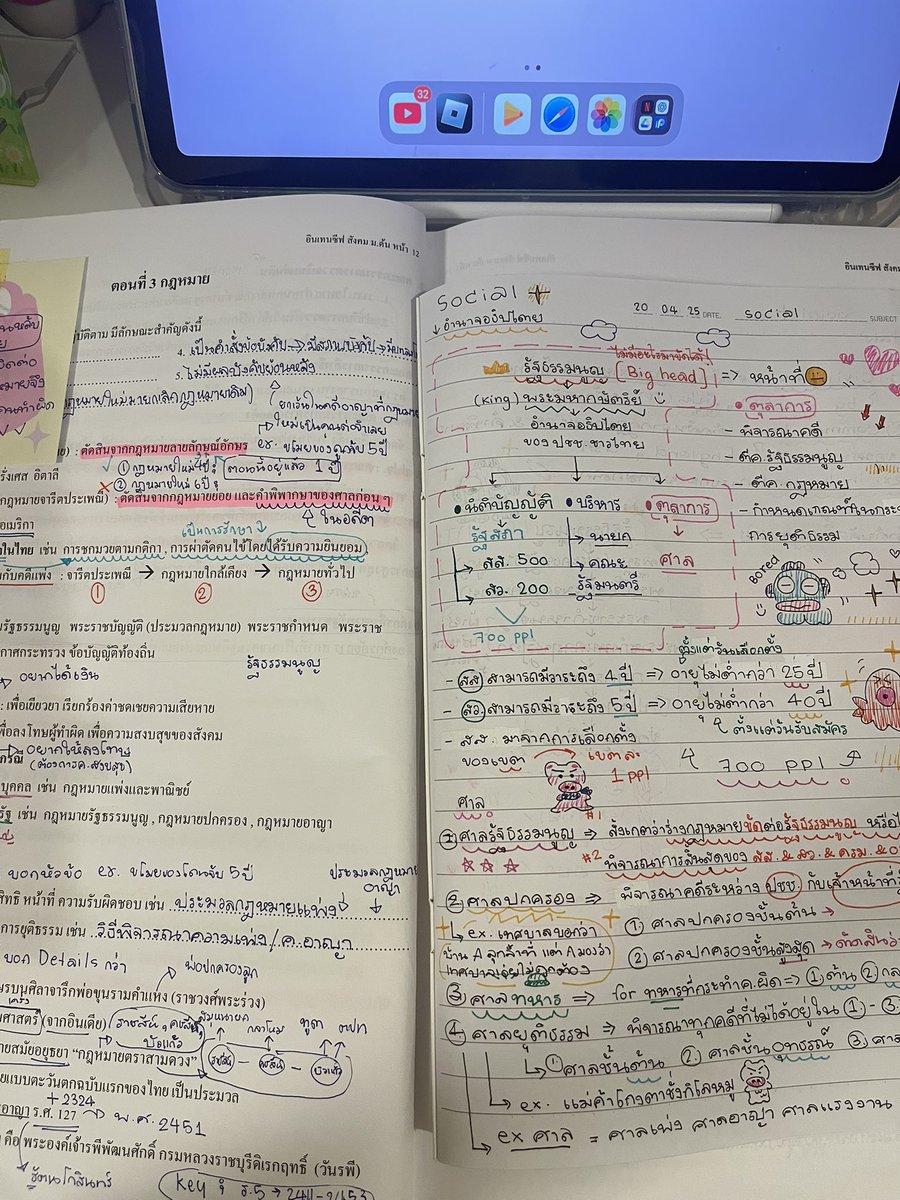 32
อินเทนซีฟ สังคม ม.ต้น หน้า 12
ตอนที่ 3 กฎหมาย
บัติตาม มีลักษณะสำคัญดังนี้
4. เป็นคำสั่งข้อบังคับ → มีสภาพบังคับ →
5. ไม่มีผลบังคับย้อนหลัง
กฎหมายใหม่มายกเลิกกฎหมายเดิม)
ยกเว้นในคดีอาญาที่กฎหมาย
ใหม่เป็นคุณต่อจำเลย
: ตัดสินจากกฎหมายลายลักษณ์อักษร
ex. ขโมยของคุกลับ 5 ปี
รั่งเศส อิตาลี
① กฎหมายใหม่ 4 ปี
ตอนนี้อยู่แล้ว 1 ปี
② กฎหมายใหม่ 6 ปี
กฎหมายจารีตประเพณี) : ตัดสินจากกฎหมายย่อย และคำพิพากษาของศาลก่อน ๆ
ในอดีต
อเมริกา
เป็นการรักษา
ในไทย เช่น การชกมวยตามกติกา , การผ่าตัดคนไข้โดยได้รับความยินยอม
กับคดีแพ่ง : จารีตประเพณี → กฎหมายใกล้เคียง → กฎหมายทั่วไป
① ② ③
รัฐธรรมนูญ พระราชบัญญัติ (ประมวลกฎหมาย) พระราชกำหนด พระราช
กาศกระทรวง ข้อบัญญัติท้องถิ่น
รัฐธรรมนูญ
อยากได้เงิน
: เพื่อเยียวยา เรียกร้องค่าชดเชยความเสียหาย
พื่อลงโทษผู้ทำผิด เพื่อความสงบสุขของสังคม
อยากให้ลงโทษ
(ต้องการค.สงบสุข)
บุคคล เช่น กฎหมายแพ่งและพาณิชย์
รัฐ เช่น กฎหมายรัฐธรรมนูญ , กฎหมายปกครอง , กฎหมายอาญา
บอกหัวข้อ ex. ขโมยของโดนจับ 5 ปี
ประมวลกฎหมาย
อาญา
สิทธิ หน้าที่ ความรับผิดชอบ เช่น ประมวลกฎหมายแพ่ง
การยุติธรรม เช่น วิธีพิจารณาความแพ่ง/ค.อาญา
บอก Details กว่า
พ่อปกครองลูก
บนศิลาจารึกพ่อขุนรามคำแหง (ราชวงศ์พระร่วง)
ศาสตร์ (จากอินเดีย)
กลาโหม
ายสมัยอยุธยา “กฎหมายตราสามดวง”
ยแบบตะวันตกฉบับแรกของไทย เป็นประมวล
+ 2324
อาญา ร.ศ. 127 → พ.ศ. 2451
คือ พระองค์เจ้ารพีพัฒนศักดิ์ กรมหลวงราชบุรีดิเรกฤทธิ์ (วันรพี)
รัตนโกสินทร์
key
อินเทนซีฟ สังค
Social
20 04 25 DATE. social SUBJECT
อำนาจอธิปไตย
รัฐธรรมนูญ [Big head] => หน้าที่
(King) พระมหากษัตริย์
อำนาจอธิปไตย
ของ ปชช. ชาวไทย
• ตุลาการ
- พิจารณาคดี
- ตีค.รัฐธรรมนูญ
- ตีค. กฎหมาย
การยุติธรรม
• นิติบัญญัติ • บริหาร • ตุลาการ
รัฐสภา
→ นายก
ศาล
→ สส. 500
→ คณะ
→ สว. 200
รัฐมนตรี
700 ppl
Bored
ตั้งแต่วันเลือกตั้ง
- สส สามารถมีวาระถึง 4 ปี => อายุไม่ต่ำกว่า 25 ปี
- สว สามารถมีวาระถึง 5 ปี => อายุไม่ต่ำกว่า 40 ปี
ตั้งแต่วันรับสมัคร
- สส. มาจากการเลือกตั้ง
ของเขต
เขตละ
1 ppl
700 ppl
ศาล
#1
① ศาลรัฐธรรมนูญ => สังเกตว่าร่างกฎหมายขัดต่อรัฐธรรมนูญ หรือไ
#2 พิจารณาการสิ้นสุดของ สส. & สว. & ครม. &
② ศาลปกครอง => พิจารณาคดีระหว่าง ปชช กับเจ้าหน้าที่
ex. เทศบาลบอกว่า
บ้าน A ลุกล้ำที่ แต่ A มองว่า
① ศาลปกครองชั้นต้น →
② ศาลปกครองชั้นสูงสุด →
③ ศาลทหาร => for ทหารที่กระทำค.ผิด => ① ต้น ②
④ ศาลยุติธรรม => พิจารณาทุกคดีที่ไม่ได้อยู่ใน ① - ③
① ศาลชั้นต้น ② ศาลชั้นอุทธรณ์ ③ ศา
ex. แม่ค้าโกงตาชั่งกิโลหมู
ex ศาล = ศาลแพ่ง ศาลอาญา ศาลแรงงาน